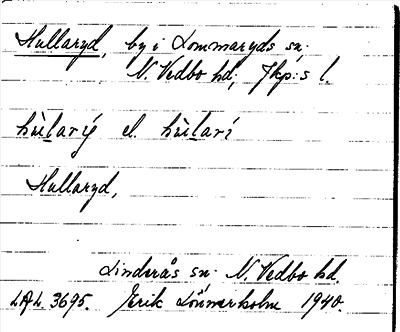 Hullaryd, by i Lommaryds sn.
N. Vedbo hd; Jkp:s l.
hùlarý el. hùlarí
Hullaryd,
Linderås sn. N. Vedbo hd.
LAL 3695. Erik Lönnerholm 1940.